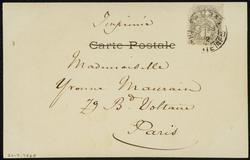 Imprimé
Carte Postale
Mademoiselle
Yvonne Maurain
79 Bd Voltaire
Paris